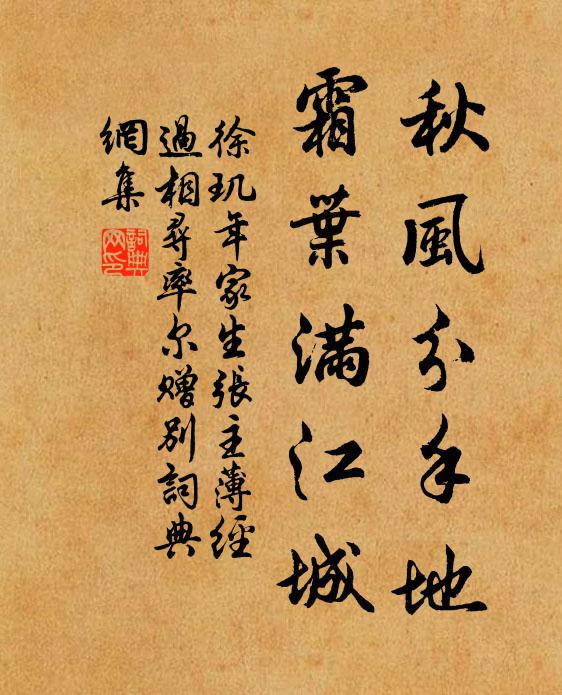 秋風分手地
霜葉滿江城
徐玑年家生張主薄經
過相尋率尔贈別詞典
網集
詞典網印